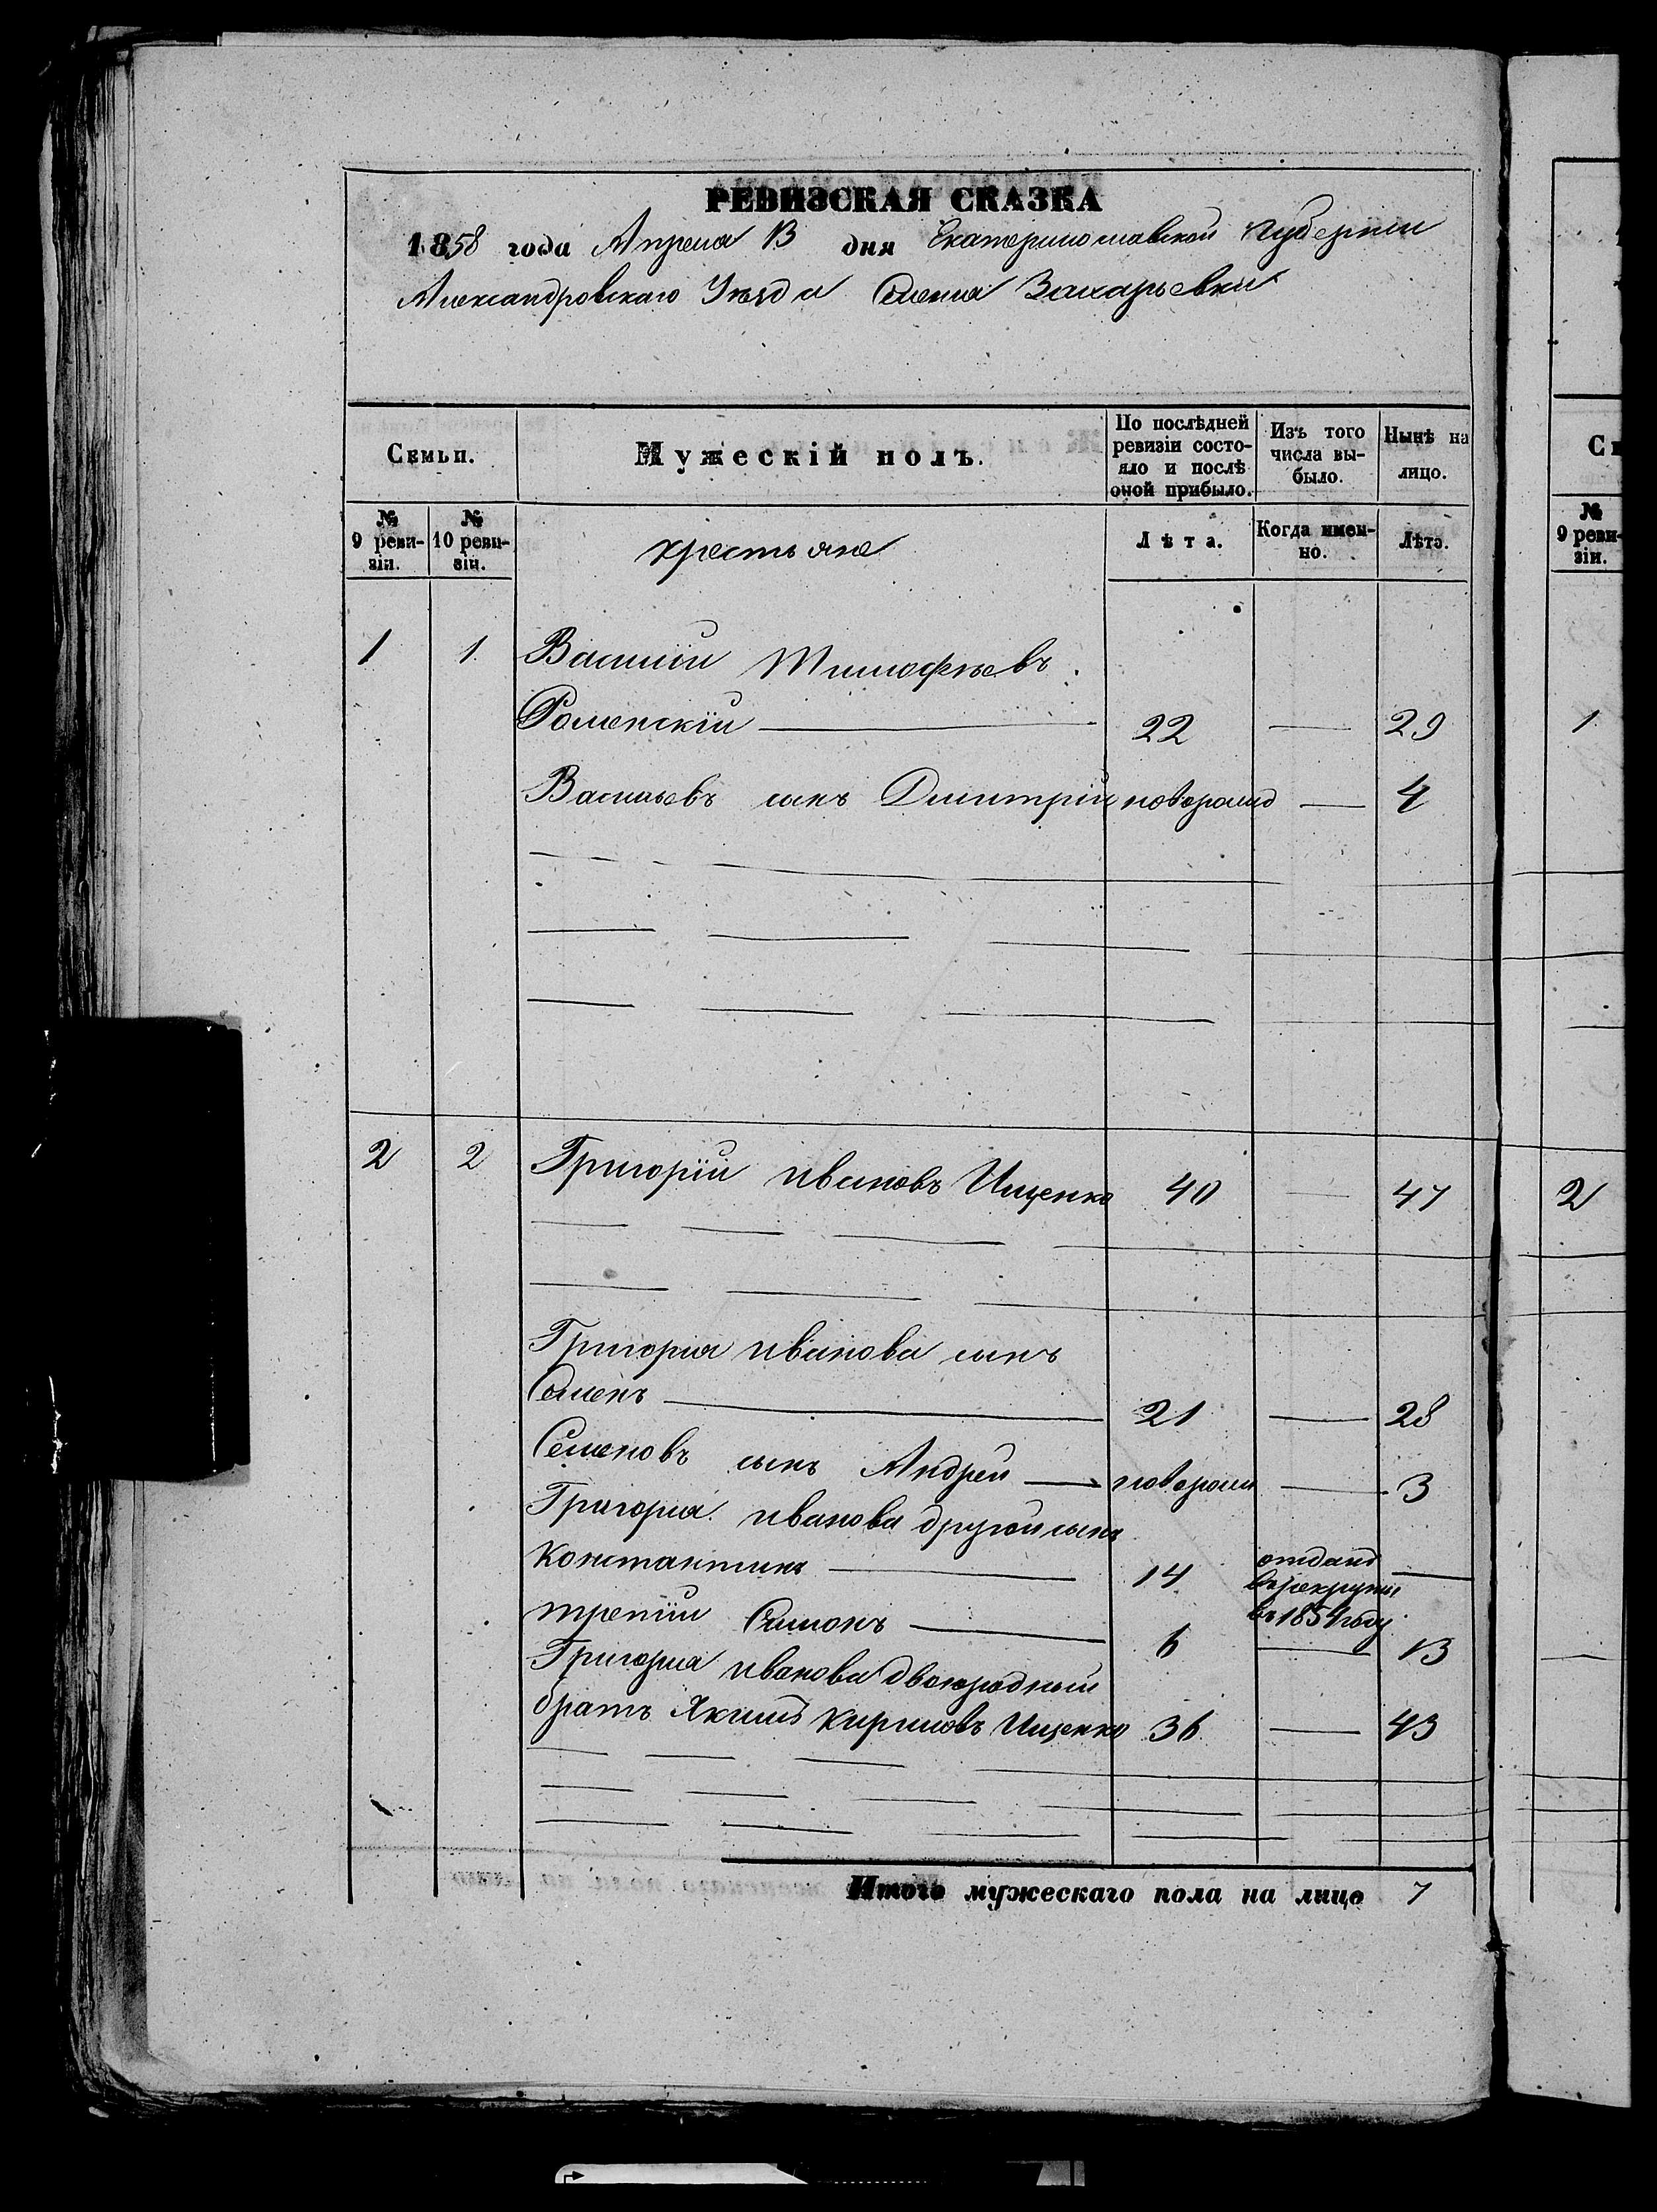 РЕВИЗСКАЯ СКАЗКА
1858 года Апреля 13 дня Екатеринославской губернии
Александровскаго Уѣзда Селения Захарьевки
Семьи. Мужескій полъ. По послѣдней ревизіи состояло и послѣ оной прибыло. Изъ того числа выбыло. Нынѣ на лицо.
№ 9 ревизіи. № 10 ревизіи. крестьяне Лѣта. Когда именно. Лѣта.
1 1 Василій Тимофѣевъ
Роменскій 22 29
Васильевъ сынъ Дмитрій новорожд 4
2 2 Григорій Ивановъ Ищенко 40 47
Григорія Иванова сынъ
Семенъ 21 28
Семеновъ сынъ Андрей новорожд 3
Григорія Иванова другой сынъ
Константинъ 14 отданъ
въ рекруты
въ 1854 году
третій Симонъ 6 13
Григорія Иванова двоюродный
братъ Якимъ Кириловъ Ищенко 36 43
Итого мужескаго пола на лицо 7
Се
№ 9 реви-
зіи.
1
2